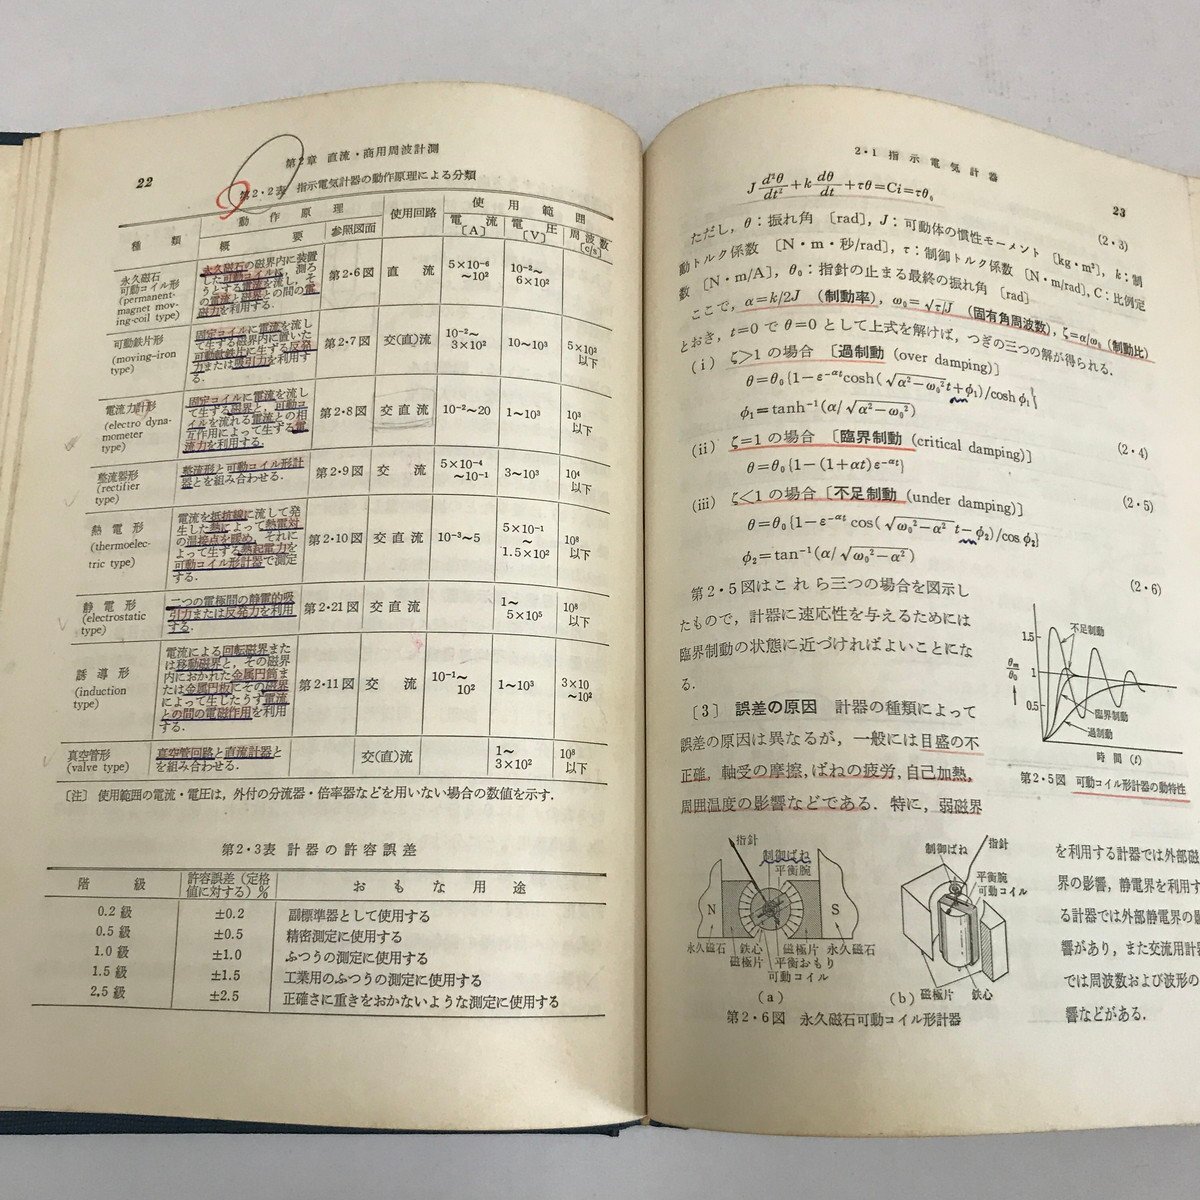 22
第2章 直流・商用周波計測
第2・2表 指示電気計器の動作原理による分類
種類
動作原理
概要
参照図面
使用回路
使用範囲
電流〔A〕
電圧〔V〕
周波数〔c/s〕
永久磁石可動コイル形(permanent-magnet moving-coil type)
永久磁石の磁界内に装置
した可動コイルに,測ろ
うとする電流を流し,そ
の電流と磁界との間の電
磁力を利用する.
第2・6図
直流
5×10⁻⁶～10²
10⁻²～6×10²
可動鉄片形(moving-iron type)
固定コイルに電流を流し
て生ずる磁界内に置いた
可動軟鉄片に生ずる反発
力または吸引力を利用す
る.
第2・7図
交(直)流
10⁻²～3×10²
10～10³
5×10²以下
電流力計形(electro dynamometer type)
固定コイルに電流を流し
て生ずる磁界と,可動コ
イルを流れる電流との相
互作用によって生ずる電
流力を利用する.
第2・8図
交直流
10⁻²～20
1～10³
10³以下
整流器形(rectifier type)
整流形と可動コイル形計
器とを組み合わせる.
第2・9図
交流
5×10⁻⁴～10⁻¹
3～10³
10⁴以下
熱電形(thermoelectric type)
電流を抵抗線に流して発
生した熱によって熱電対
の温接点を暖め,それに
よって生ずる熱起電力を
可動コイル形計器で測定
する.
第2・10図
交直流
10⁻³～5
5×10⁻¹～1.5×10²
10⁸以下
静電形(electrostatic type)
二つの電極間の静電的吸
引力または反発力を利用
する.
第2・21図
交直流
1～5×10⁵
10⁸以下
誘導形(induction type)
電流による回転磁界また
は移動磁界と,その磁界
内におかれた金属円筒ま
たは金属円板にその磁界
によって生じたうず電流
との間の電磁作用を利用
する.
第2・11図
交流
10⁻¹～10²
1～10³
3×10～10²
真空管形(valve type)
真空管回路と直流計器と
を組み合わせる.
交(直)流
1～3×10²
10⁸以下
〔注〕 使用範囲の電流・電圧は,外付の分流器・倍率器などを用いない場合の数値を示す.
第2・3表 計器の許容誤差
階級 許容誤差(定格値に対する)% おもな用途
0.2級 ±0.2 副標準器として使用する
0.5級 ±0.5 精密測定に使用する
1.0級 ±1.0 ふつうの測定に使用する
1.5級 ±1.5 工業用のふつうの測定に使用する
2.5級 ±2.5 正確さに重きをおかないような測定に使用する
2・1 指示電気計器
23
J d²θ/dt² + k dθ/dt + τθ=Ci=τθ₀
(2・3)
ただし,θ:振れ角〔rad〕,J:可動体の慣性モーメント〔kg・m²〕,k:制
動トルク係数〔N・m・秒/rad〕,τ:制御トルク係数〔N・m/rad〕,C:比例定
数〔N・m/A〕,θ₀:指針の止まる最終の振れ角〔rad〕
ここで,α=k/2J (制動率),ω₀=√τ/J (固有角周波数),ζ=α/ω₀ (制動比)
とおき,t=0でθ=0として上式を解けば,つぎの三つの解が得られる.
(i) ζ>1の場合〔過制動(over damping)〕
θ=θ₀{1−ε⁻ᵅᵗcosh(√α²−ω₀² t+φ₁)/cosh φ₁}
φ₁=tanh⁻¹(α/√α²−ω₀²)
(2・4)
(ii) ζ=1の場合〔臨界制動(critical damping)〕
θ=θ₀{1−(1+αt)ε⁻ᵅᵗ}
(2・5)
(iii) ζ<1の場合〔不足制動(under damping)〕
θ=θ₀{1−ε⁻ᵅᵗ cos(√ω₀²−α² t−φ₂)/cos φ₂}
φ₂=tan⁻¹(α/√ω₀²−α²)
(2・6)
第2・5図はこれら三つの場合を図示し
たもので,計器に速応性を与えるためには
臨界制動の状態に近づければよいことにな
る.
〔3〕 誤差の原因 計器の種類によって
誤差の原因は異なるが,一般には目盛の不
正確,軸受の摩擦,ばねの疲労,自己加熱,
周囲温度の影響などである.特に,弱磁界
1.5
1
0.5
θm/θ₀
不足制動
臨界制動
過制動
時間(t)
第2・5図 可動コイル形計器の動特性
指針
制御ばね
平衡腕
N
S
永久磁石
鉄心
磁極片
磁極片
永久磁石
平衡おもり
可動コイル
(a)
制御ばね
指針
平衡腕
可動コイル
磁極片
鉄心
(b)
第2・6図 永久磁石可動コイル形計器
を利用する計器では外部磁
界の影響,静電界を利用す
る計器では外部静電界の影
響があり,また交流用計器
では周波数および波形の
響などがある.